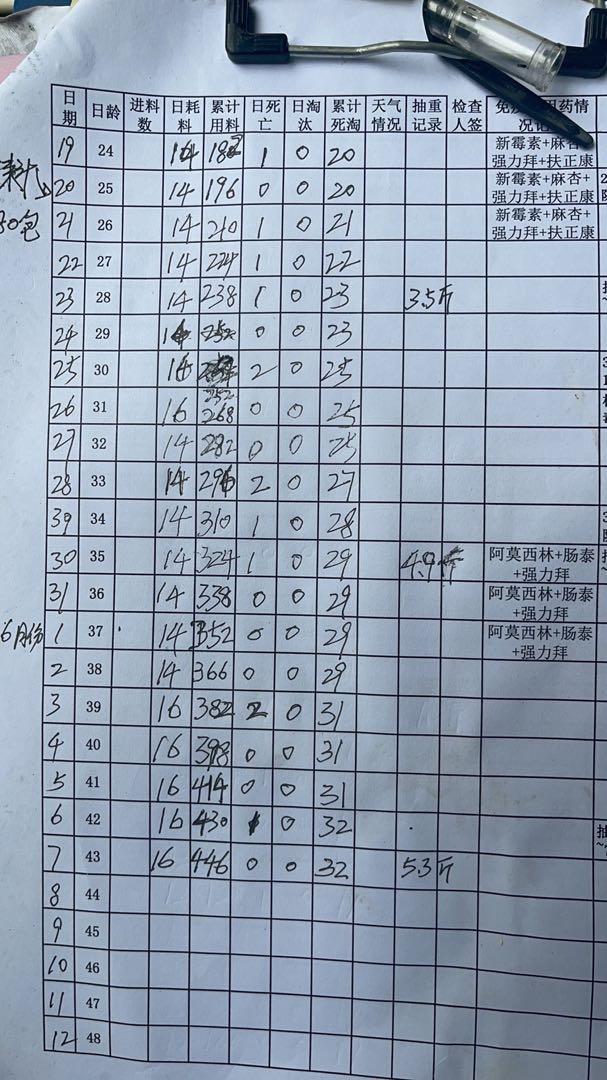 日期 日龄 进料数 日耗料 累计用料 日死亡 日淘汰 累计死淘 天气情况 抽重记录 检查人签
19 24 14 182 1 0 20 新霉素+麻杏+强力拜+扶正康
20 25 14 196 0 0 20 新霉素+麻杏+强力拜+扶正康
21 26 14 210 1 0 21 新霉素+麻杏+强力拜+扶正康
22 27 14 224 1 0 22
23 28 14 238 1 0 23 3.5斤
24 29 14 252 0 0 23
25 30 16 2 0 25
252
26 31 16 268 0 0 25
27 32 14 282 0 0 25
28 33 14 296 2 0 27
39 34 14 310 1 0 28
30 35 14 324 1 0 29 4.9斤 阿莫西林+肠泰+强力拜
31 36 14 338 0 0 29 阿莫西林+肠泰+强力拜
6月份 1 37 14 352 0 0 29 阿莫西林+肠泰+强力拜
2 38 14 366 0 0 29
3 39 16 382 2 0 31
4 40 16 398 0 0 31
5 41 16 414 0 0 31
6 42 16 430 1 0 32
7 43 16 446 0 0 32 5.3斤
8 44
9 45
10 46
11 47
12 48